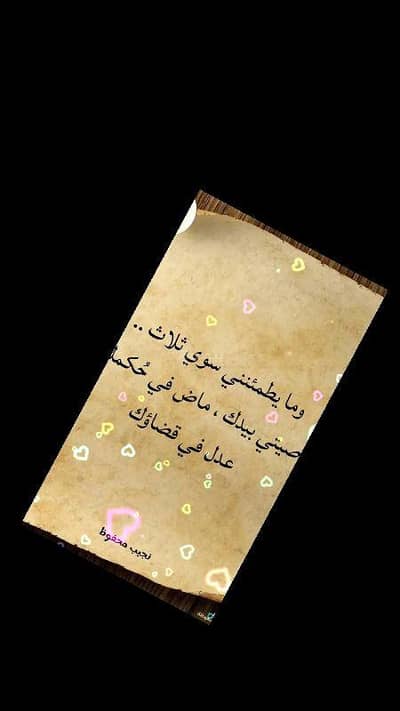 وما يطمئنني سوي ثلاث ..
صيتي بيدك ، ماض في حُكمك
عدل في قضاؤك
نجيب محفوظ